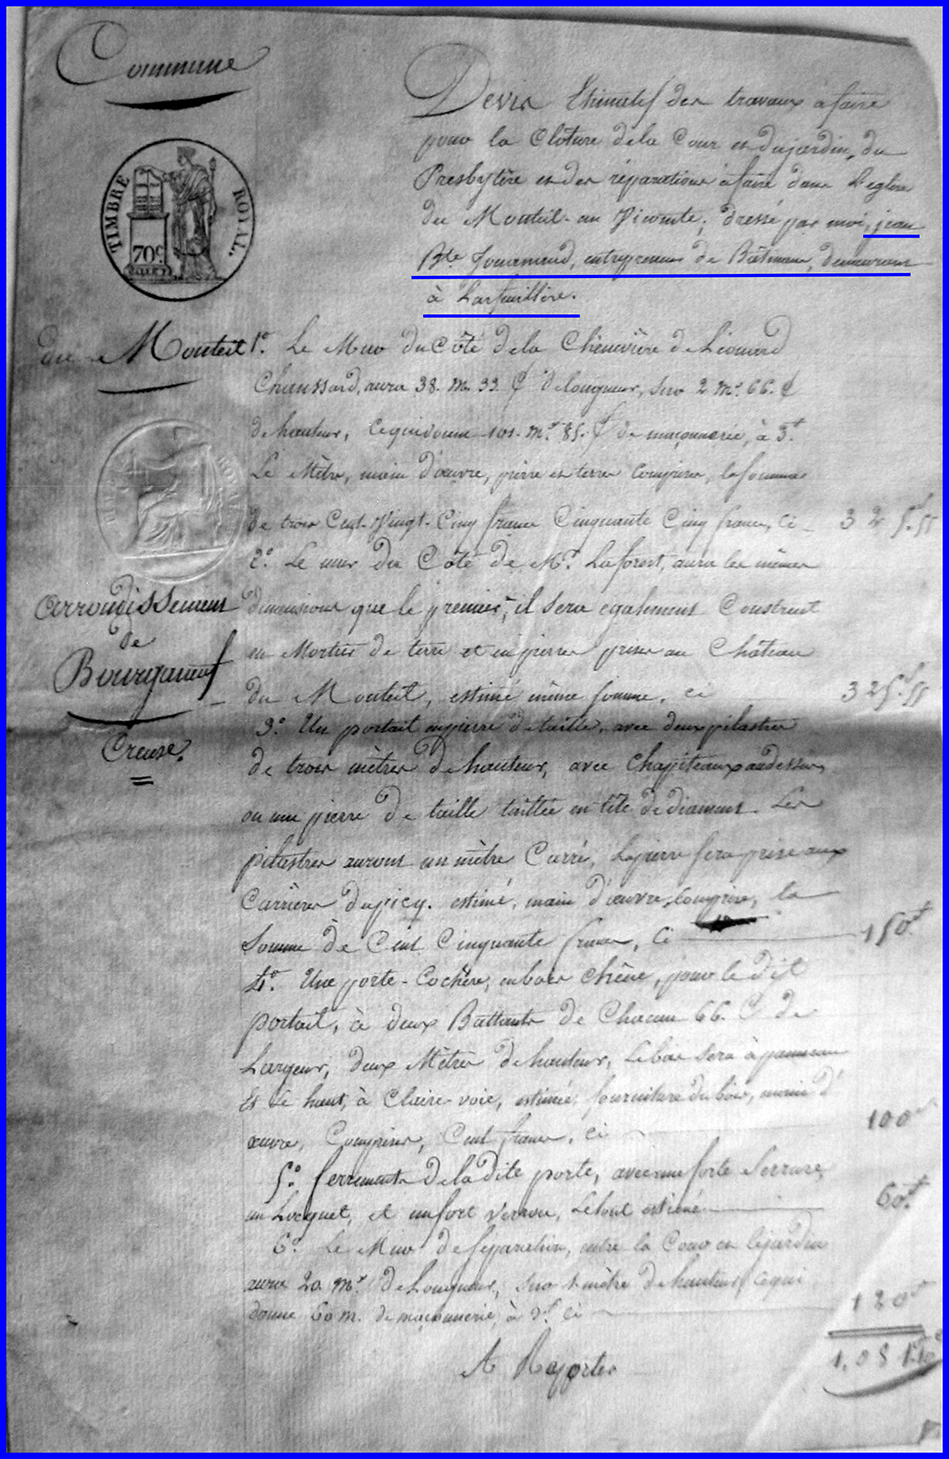 Commune
TIMBRE ROYAL.
70c
Devis Estimatif des travaux à faire
pour la Cloture de la Cour et du jardin, du
Presbytère et des réparations à faire dans l'église
du Monteil-au Vicomte, dressé par moi, jean
Bte entrepreneur de Bâtimens, demeurant
à
du Monteil
1o. Le Mur du Côté de la Chenevière de Léonard
Chaussard, aura 38. m. 33. C de longueur, sur 2 ms. 66. C
de hauteur, ce qui donne 101. ms. 85. C de maçonnerie, à 3f
Le Mètre, main d'œuvre, pierre et terre comprises, la somme
de trois Cent-Vingt-Cinq francs Cinquante Cinq francs, ci 325f.55
2o. Le mur du Côté de Mr. Laforest, aura les mêmes
Arrondissement
dimensions que le premier, il sera egalement Construit
de
en Mortier de terre et en pierres prises au Château
Bourganeuf
du Monteil, estimé même somme, ci 325f.55
3o. Un portail en pierre de taille, avec deux pilastres
Creuse.
de trois mètres de hauteur, avec Chapiteaux au dessus,
ou une pierre de taille taillée en tête de diamant. Les
pilastres auront un mètre Carré, la pierre sera prise aux
Carrières estimé, main d'œuvre comprise, la
Somme de Cent Cinquante francs, Ci 150f
4o. Une porte-Cochère, en bois chêne, pour le dit
portail, à deux Battants de Chacun 66. C de
Largeur, deux Mètres de hauteur, Le bas sera à panneau
Et le haut, à Claire-voie, estimée, fourniture du bois, main d'
œuvre, Comprises, Cent francs, ci 100
5o. ferrements de la dite porte, avec une forte Serrure,
un Locquet, et un fort verrou, Le tout estimé 60f
6o. Le Mur de séparation, entre la Cour et le jardin
aura 20 ms de Longueur, sur mètre de hauteur, ce qui
donne 60 m. de maçonnerie, à 2f Ci 120
1,081.10c
A Reporter